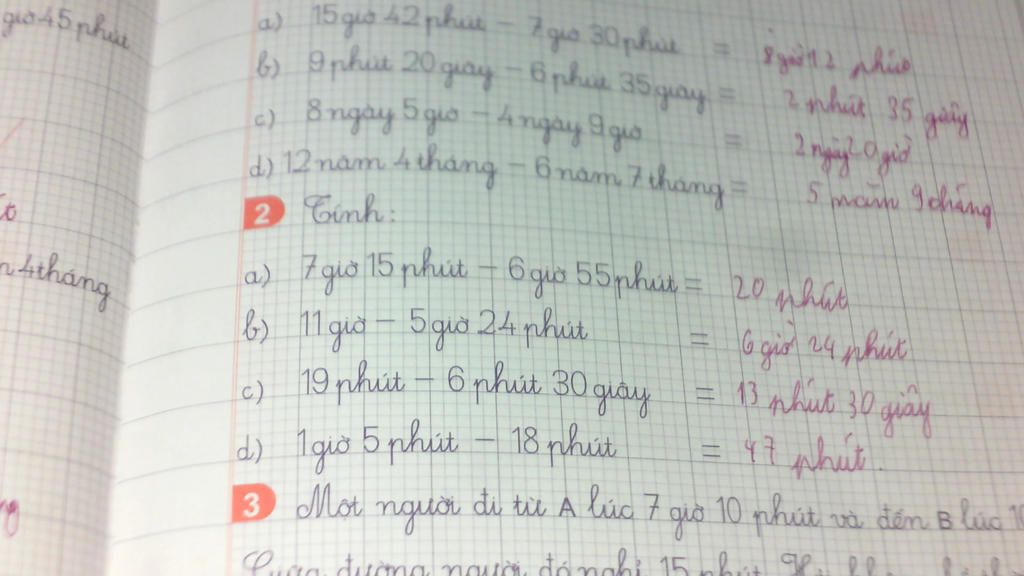 giờ 45 phút
a) 15 giờ 42 phút - 7 giờ 30 phút = 8 giờ 12 phút
b) 9 phút 20 giây - 6 phút 35 giây = 2 phút 35 giây
c) 8 ngày 5 giờ - 4 ngày 9 giờ = 2 ngày 20 giờ
d) 12 năm 4 tháng - 6 năm 7 tháng = 5 năm 9 tháng
2 Tính:
4 tháng
a) 7 giờ 15 phút - 6 giờ 55 phút = 20 phút
b) 11 giờ - 5 giờ 24 phút = 6 giờ 24 phút
c) 19 phút - 6 phút 30 giây = 13 phút 30 giây
d) 1 giờ 5 phút - 18 phút = 47 phút.
3 Một người đi từ A lúc 7 giờ 10 phút và đến B lúc
đường người đó nghỉ 15 phút